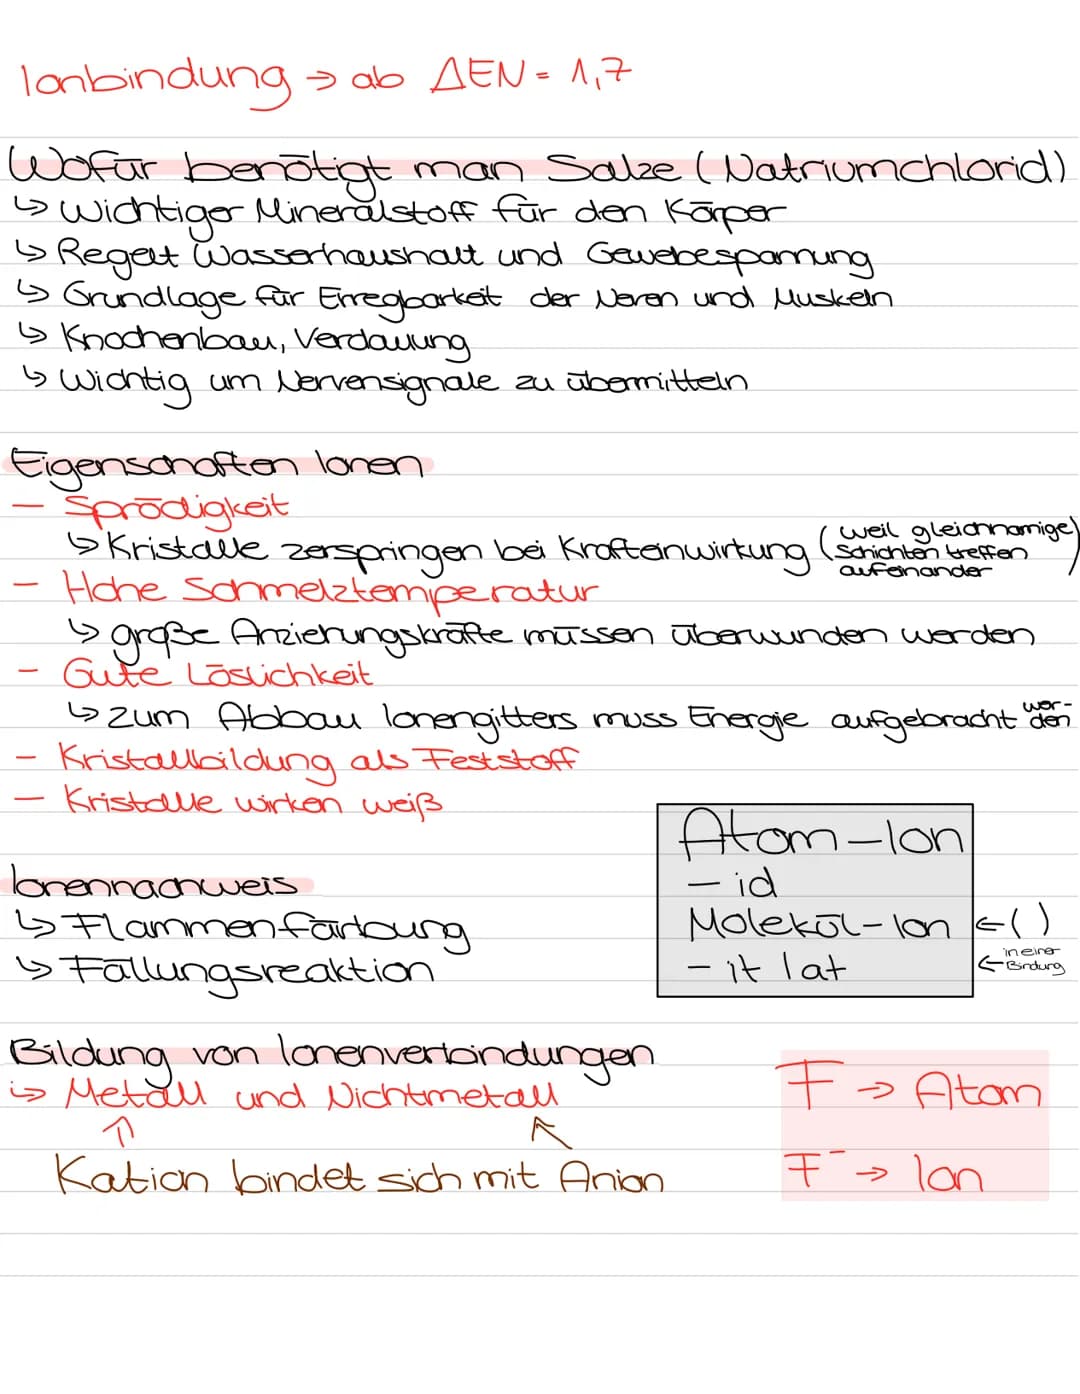 Ionbindung → ab ΔEN = 1,7
Wofür benötigt man Salze (Natriumchlorid)
↳ Wichtiger Mineralstoff für den Körper
↳ Regelt Wasserhaushalt und Gewebespannung
↳ Grundlage für Erregbarkeit der Nerven und Muskeln
↳ Knochenbau, Verdauung
↳ Wichtig um Nervensignale zu übermitteln
Eigenschaften Ionen
- Sprödigkeit
↳ Kristalle zerspringen bei Krafteinwirkung (weil gleichnamige
Schichten treffen
aufeinander)
- Hohe Schmelztemperatur
↳ große Anziehungskräfte müssen überwunden werden
- Gute Löslichkeit
↳ zum Abbau Ionengitters muss Energie aufgebracht wor-
den
- Kristallbildung als Feststoff
- Kristalle wirken weiß
Atom-Ion
- id
Molekül-Ion ←( )
- it lat ← in einer
Bindung
Ionennachweis
↳ Flammenfärbung
↳ Fällungsreaktion
Bildung von Ionenverbindungen
↳ Metall und Nichtmetall
↑ ↖
Kation bindet sich mit Anion
F → Atom
F⁻ → Ion